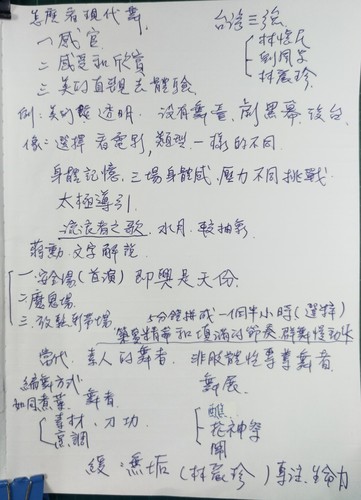 怎麼看現代舞
台灣三強
林懷民
劉鳳學
林麗珍
一 感官
二 感受和欣賞
三 美的直觀去體驗
例：美的 透明 沒有舞台 黑幕 後台
像：選擇看電影，類型一樣的不同
身體記憶，三場身體感，壓力不同挑戰
太極導引
流浪者之歌 水月 較抽象
蔣勳 文字解說
一 安全場（首演）即興是天份
二 磨思場
三 放鬆到等場
5分鐘拼成一個半小時（選擇）
和 的節奏群舞慢動作
當代 素人的舞者 非肢體性專業舞者
編舞方式
如同煮菜 舞者
素材 刀功
烹調
舞展
醮
花神祭
觀
緩 無垢（林麗珍）專注 生命力